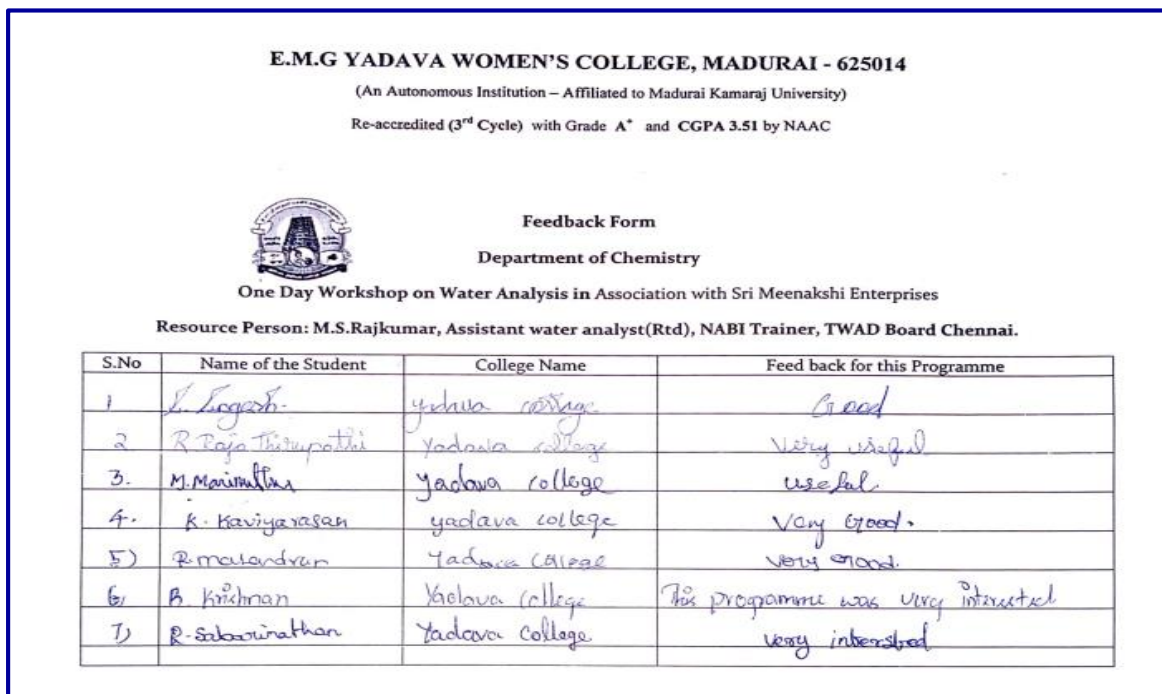 E.M.G YADAVA WOMEN'S COLLEGE, MADURAI - 625014
(An Autonomous Institution – Affiliated to Madurai Kamaraj University)
Re-accredited (3rd Cycle) with Grade A+ and CGPA 3.51 by NAAC
Feedback Form
Department of Chemistry
One Day Workshop on Water Analysis in Association with Sri Meenakshi Enterprises
Resource Person: M.S.Rajkumar, Assistant water analyst(Rtd), NABI Trainer, TWAD Board Chennai.
S.No Name of the Student College Name Feed back for this Programme
1 Good
2 R Raja Thirupathi Yadava college Very useful
3. M. Marimuthu Yadava college useful.
4. K. Kaviyarasan yadava college Very Good.
5) Yadava College very Good.
6, B. Krishnan Yadava College This programme was very interested
7) R. Sabarinathan Yadava College very intersted